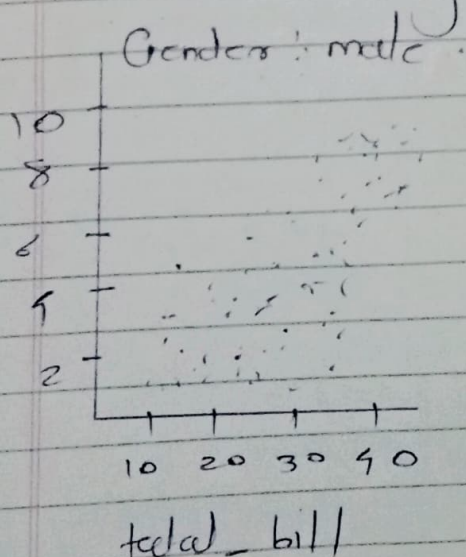 Gender : male
10
8
6
4
2
10 20 30 40
total_bill